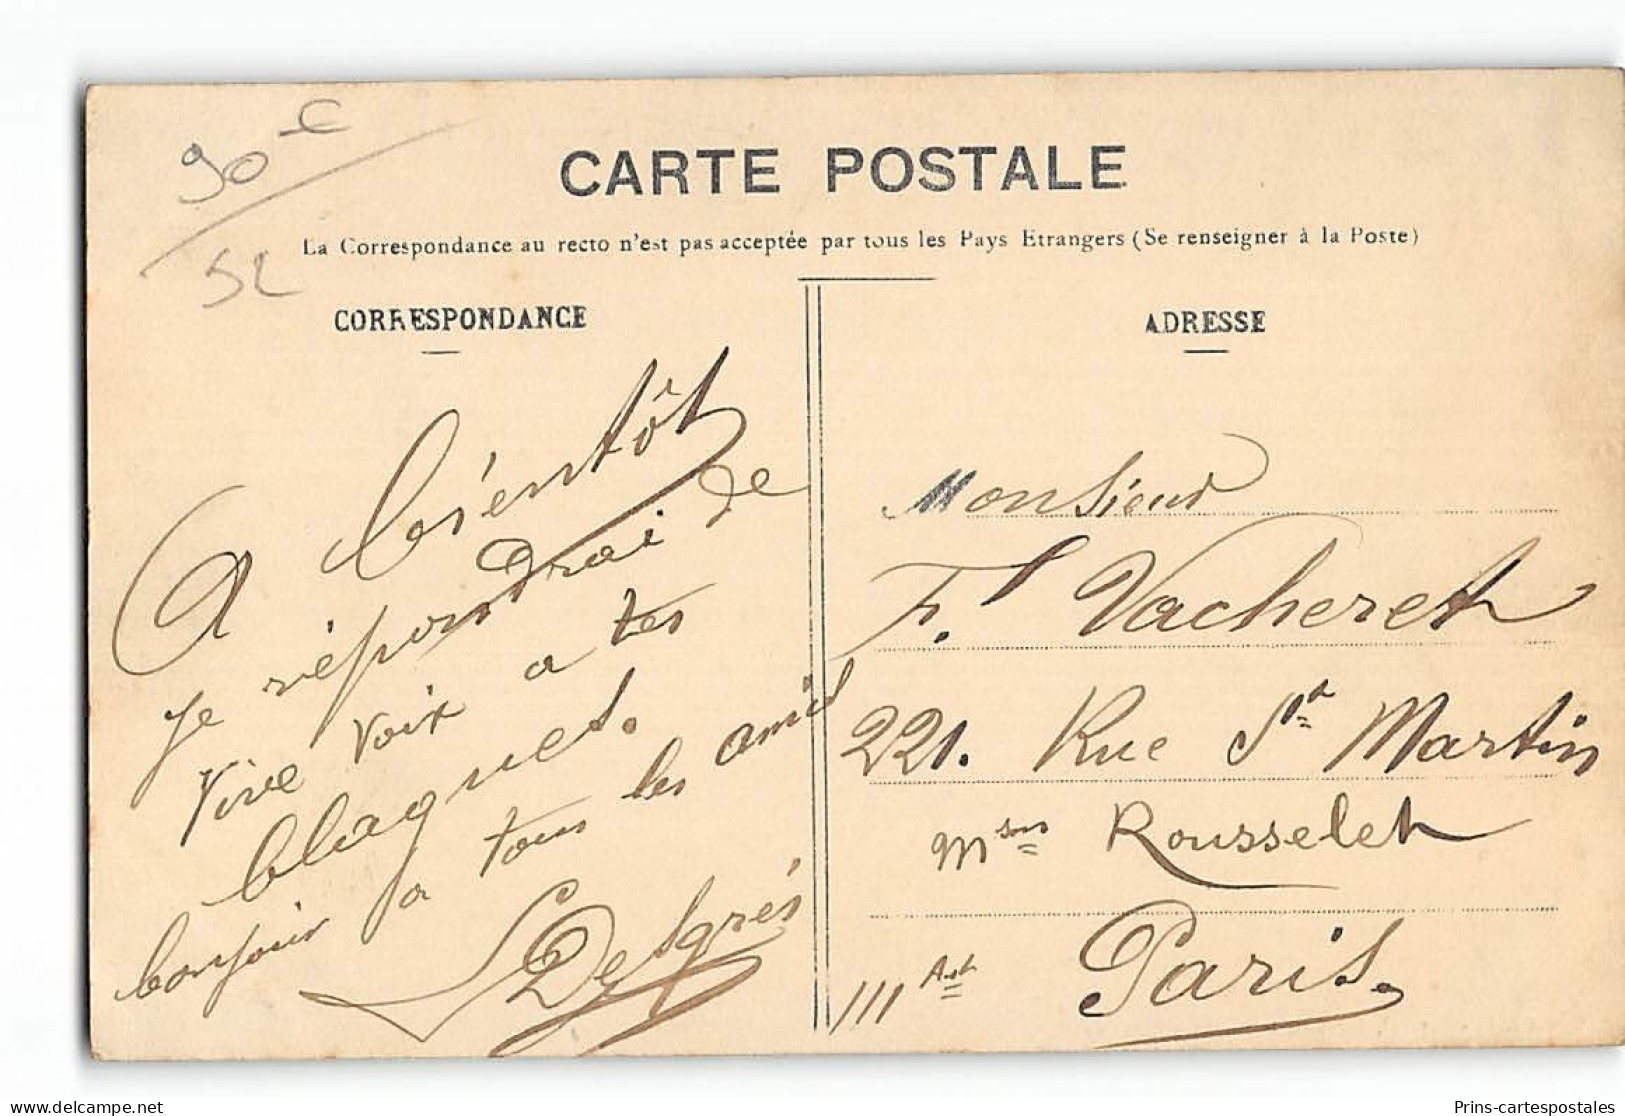 90 c
52
CARTE POSTALE
La Correspondance au recto n'est pas acceptée par tous les Pays Etrangers (Se renseigner à la Poste)
CORRESPONDANCE
A bientôt
je répondrai de
vive voix a tes
blagues.
bonjour a tous les amis
LDesgrés
ADRESSE
Monsieur
F. Vacheret
221. Rue St Martin
Mson Rousselet
Paris.
III Art
Prins-cartespostales